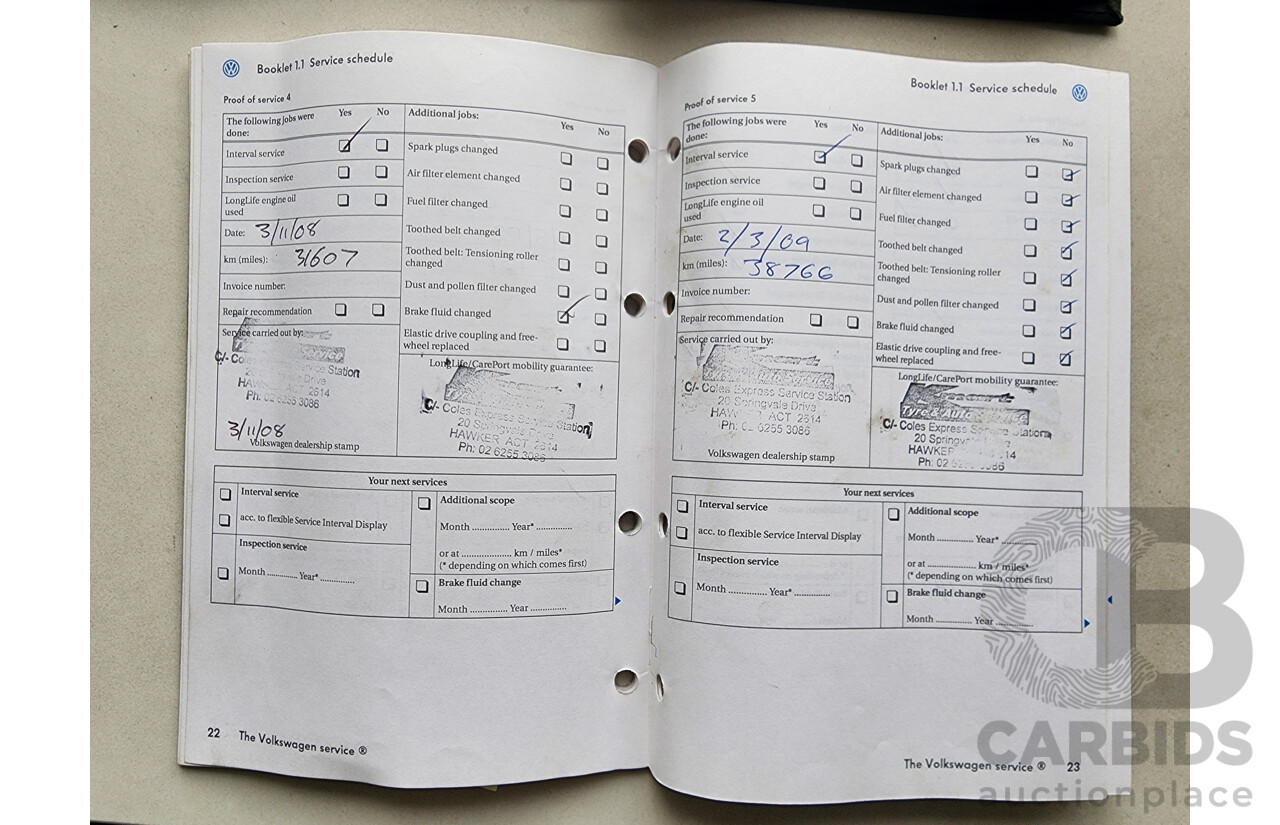 Booklet 1.1 Service schedule
Proof of service 4
The following jobs were done:
Yes No
Interval service
Inspection service
LongLife engine oil used
Date: 3/11/08
km (miles): 31607
Invoice number:
Repair recommendation
Service carried out by:
C/- Coles Station
Drive
2614
Ph: 02 6255 3086
3/11/08
Volkswagen dealership stamp
Additional jobs:
Yes No
Spark plugs changed
Air filter element changed
Fuel filter changed
Toothed belt changed
Toothed belt: Tensioning roller changed
Dust and pollen filter changed
Brake fluid changed
Elastic drive coupling and free-wheel replaced
LongLife/CarePort mobility guarantee:
C/- Coles Express Service Station
20 Springvale Drive
HAWKER ACT 2614
Ph: 02 6255 3086
Your next services
Interval service
acc. to flexible Service Interval Display
Inspection service
Month ........... Year* ............
Additional scope
Month ............. Year* .............
or at .................. km / miles*
(* depending on which comes first)
Brake fluid change
Month ............. Year .............
22 The Volkswagen service ®
Booklet 1.1 Service schedule
Proof of service 5
The following jobs were done:
Yes No
Interval service
Inspection service
LongLife engine oil used
Date: 2/3/09
km (miles): 38766
Invoice number:
Repair recommendation
Service carried out by:
C/- Coles Express Service Station
20 Springvale Drive
ACT 2614
Ph: 6255 3086
Volkswagen dealership stamp
Additional jobs:
Yes No
Spark plugs changed
Air filter element changed
Fuel filter changed
Toothed belt changed
Toothed belt: Tensioning roller changed
Dust and pollen filter changed
Brake fluid changed
Elastic drive coupling and free-wheel replaced
LongLife/CarePort mobility guarantee:
Tyre & Auto Service
C/- Coles Express Service Station
20
HAWKER
Ph: 02
Your next services
Interval service
acc. to flexible Service Interval Display
Inspection service
Month ............. Year* ............
Additional scope
Month ............. Year* .............
or at ................. km / miles*
(* depending on which comes first)
Brake fluid change
Month ............. Year .............
The Volkswagen service ® 23
CARBIDS
auctionplace